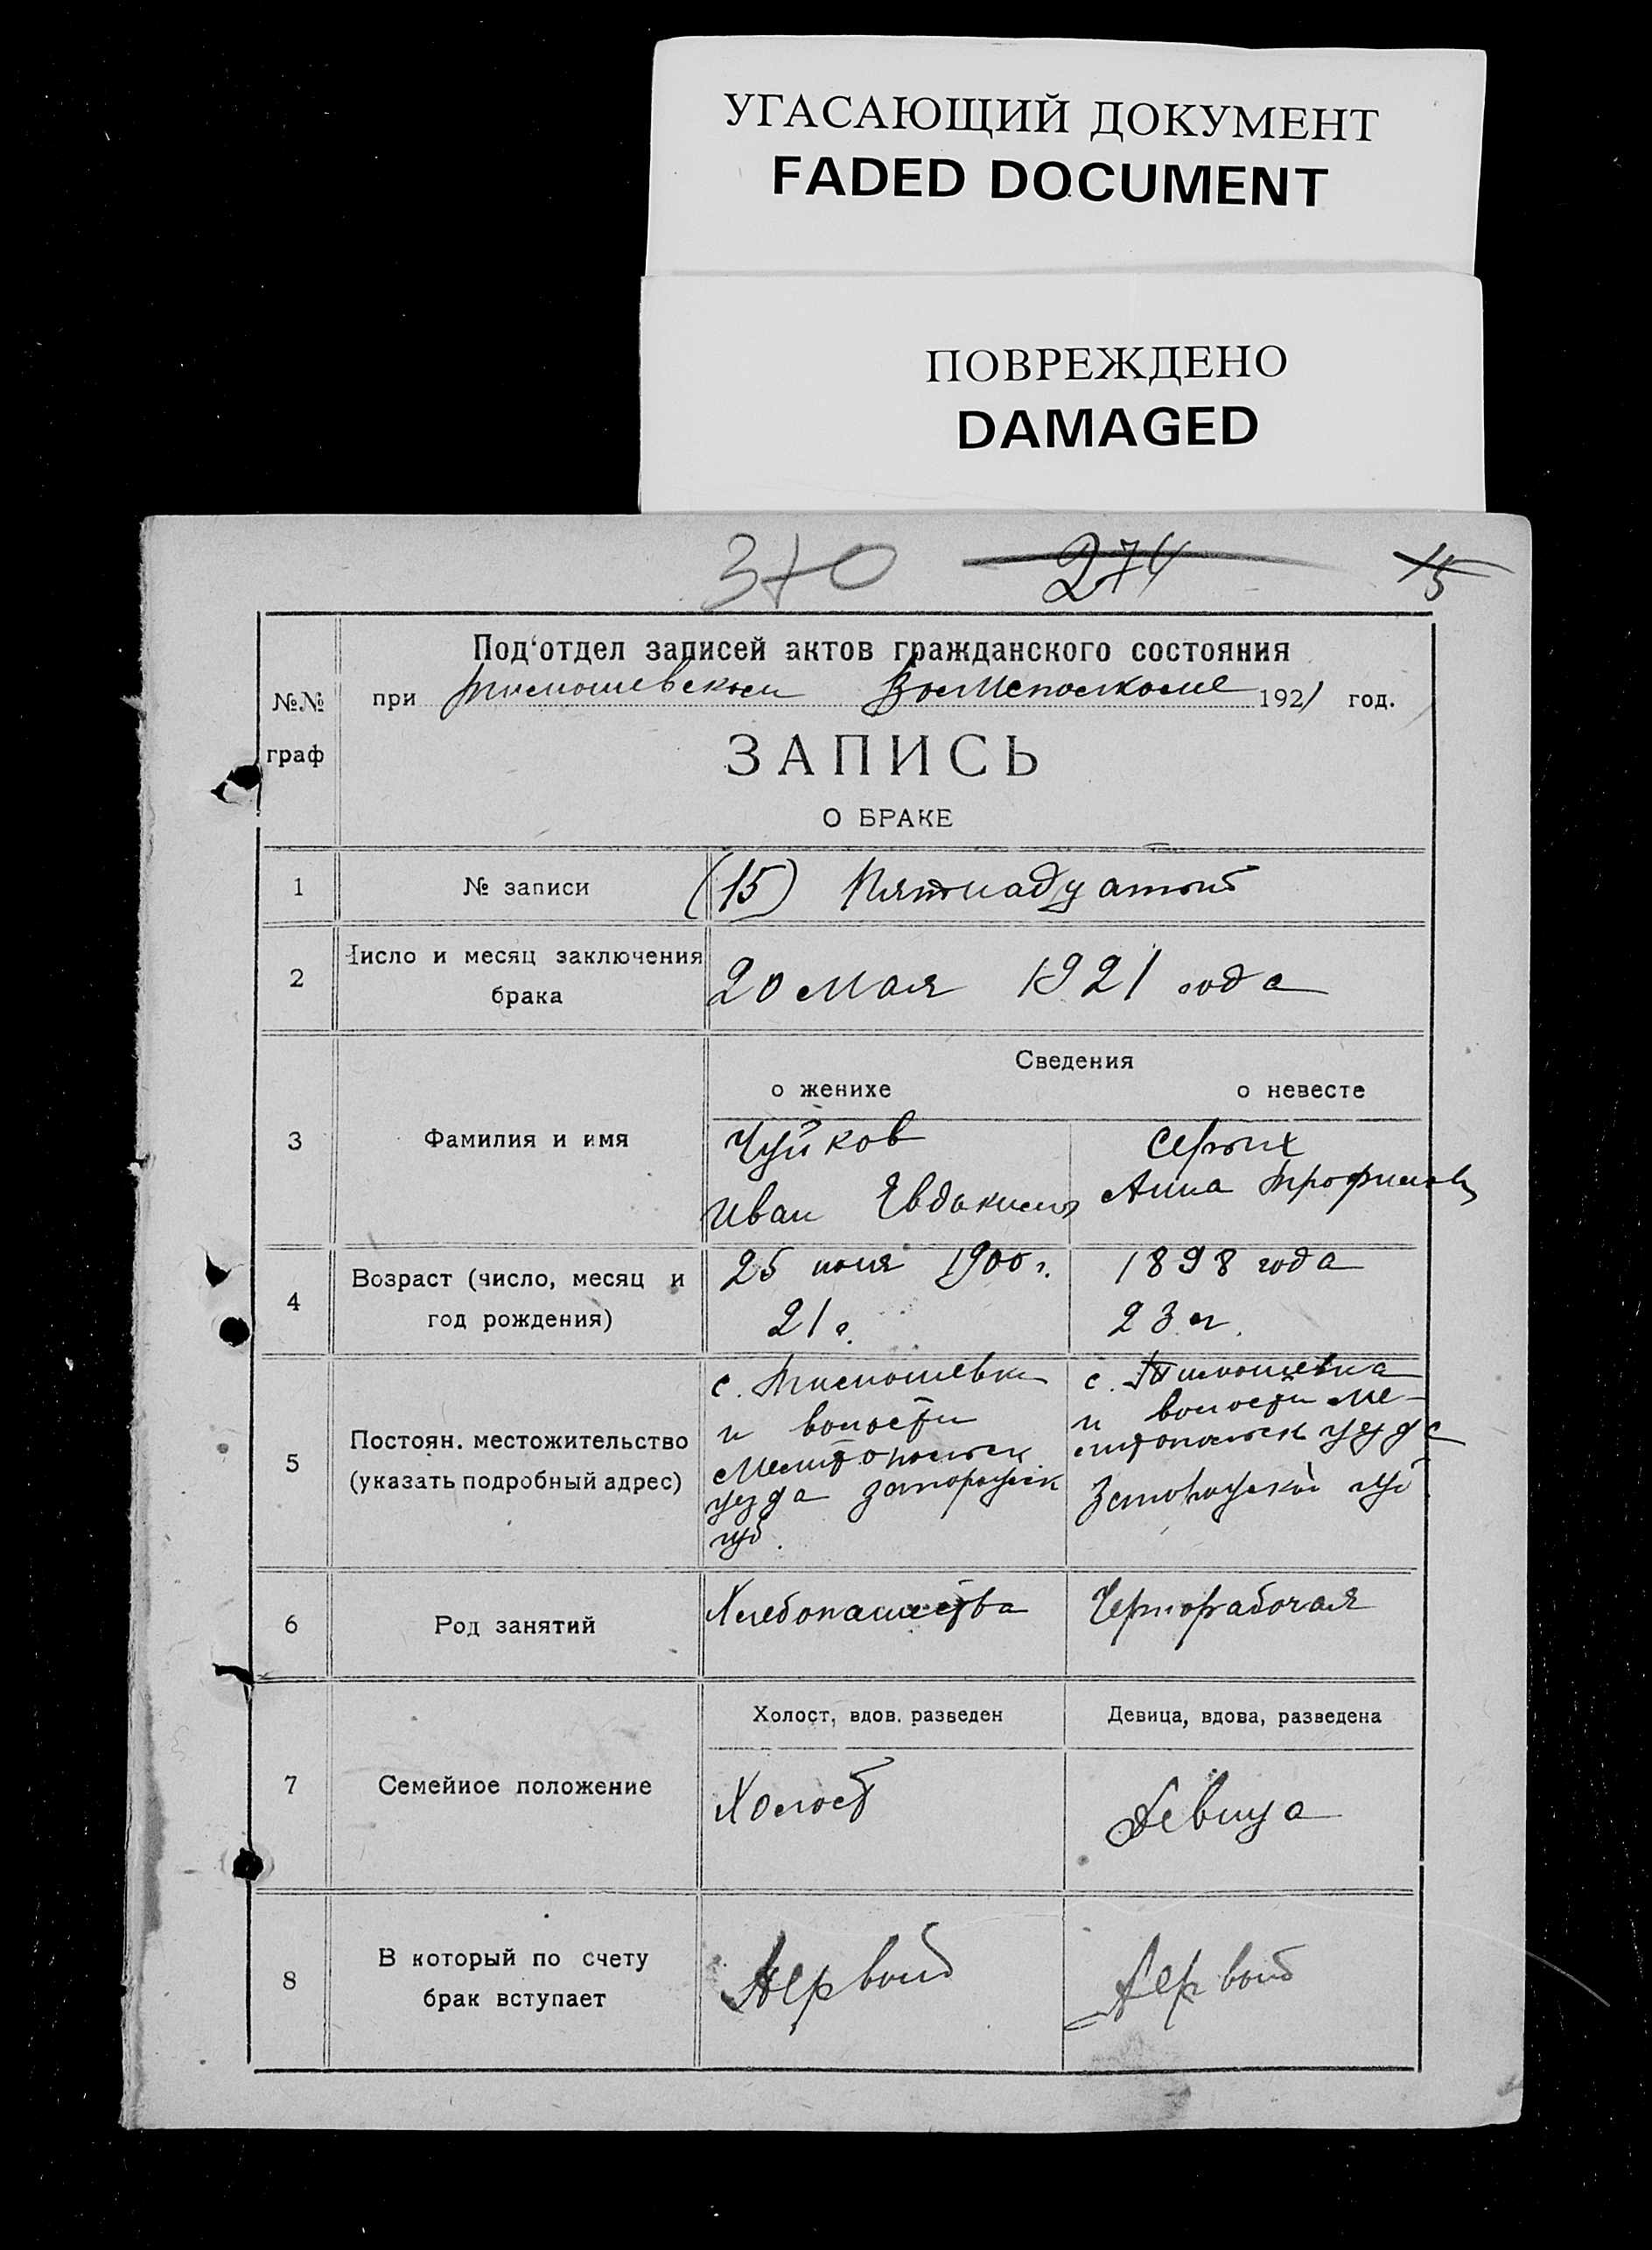 УГАСАЮЩИЙ ДОКУМЕНТ
FADED DOCUMENT
ПОВРЕЖДЕНО
DAMAGED
370 274 15
№№ граф
Под'отдел записей актов гражданского состояния
при Тимошевском Волисполкоме 1921 год.
ЗАПИСЬ
О БРАКЕ
1 № записи (15) Пятнадцатый
2 Число и месяц заключения брака 20 мая 1921 года
Сведения
о женихе о невесте
3 Фамилия и имя
Чуйков
Иван Евдоким
Серых
Анна Трофимов
4 Возраст (число, месяц и
год рождения)
25 1900 г.
21 г.
1898 года
23 г.
5 Постоян. местожительство
(указать подробный адрес)
с. Тимошевки
и волости
Мелитопольск
уезда Запорожск
губ.
с. Тимошевка
и волости Ме-
литопольск уезда
Запорожской губ
6 Род занятий Хлебопашества Чернорабочая
7 Семейное положение
Холост, вдов. разведен Девица, вдова, разведена
Холост Девица
8 В который по счету
брак вступает
Первый Первый